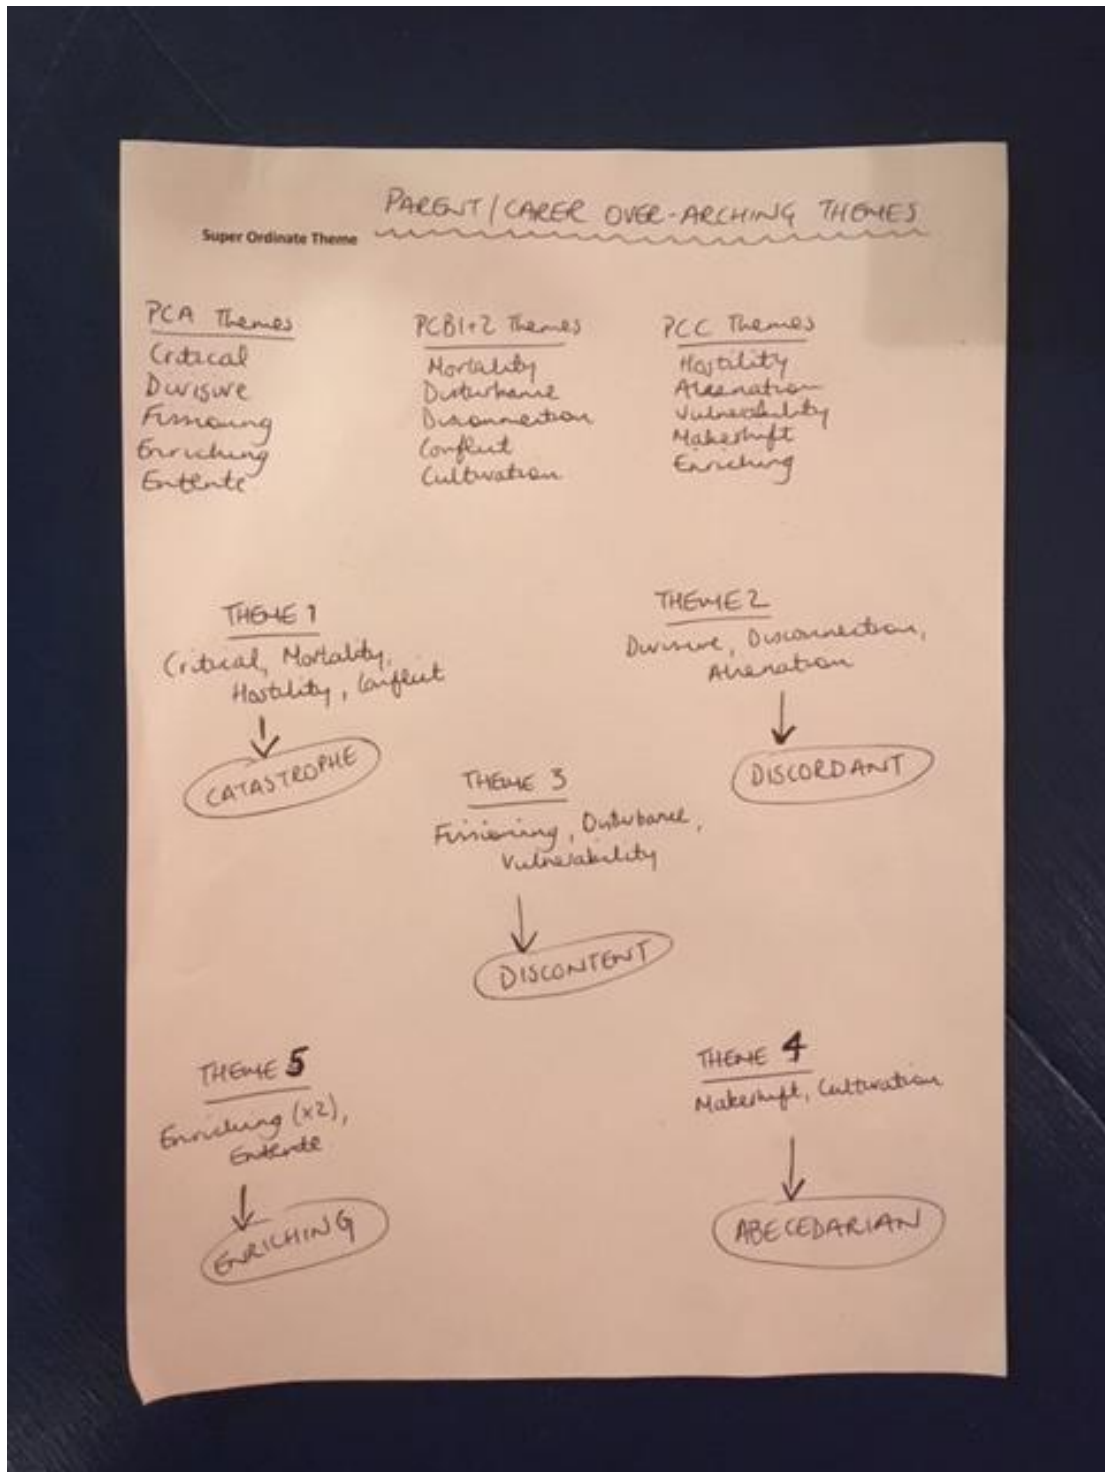 PARENT/CARER OVER-ARCHING THEMES
Super Ordinate Theme
PCA Themes
Critical
Divisive
Fissioning
Enriching
Entente
PCB1+2 Themes
Mortality
Disturbance
Disconnection
Conflict
Cultivation
PCC Themes
Hostility
Alienation
Vulnerability
Makeshift
Enriching
THEME 1
Critical, Mortality,
Hostility, Conflict
CATASTROPHE
THEME 2
Divisive, Disconnection,
Alienation
DISCORDANT
THEME 3
Fissioning, Disturbance,
Vulnerability
DISCONTENT
THEME 5
Enriching (x2),
Entente
ENRICHING
THEME 4
Makeshift, Cultivation
ABECEDARIAN